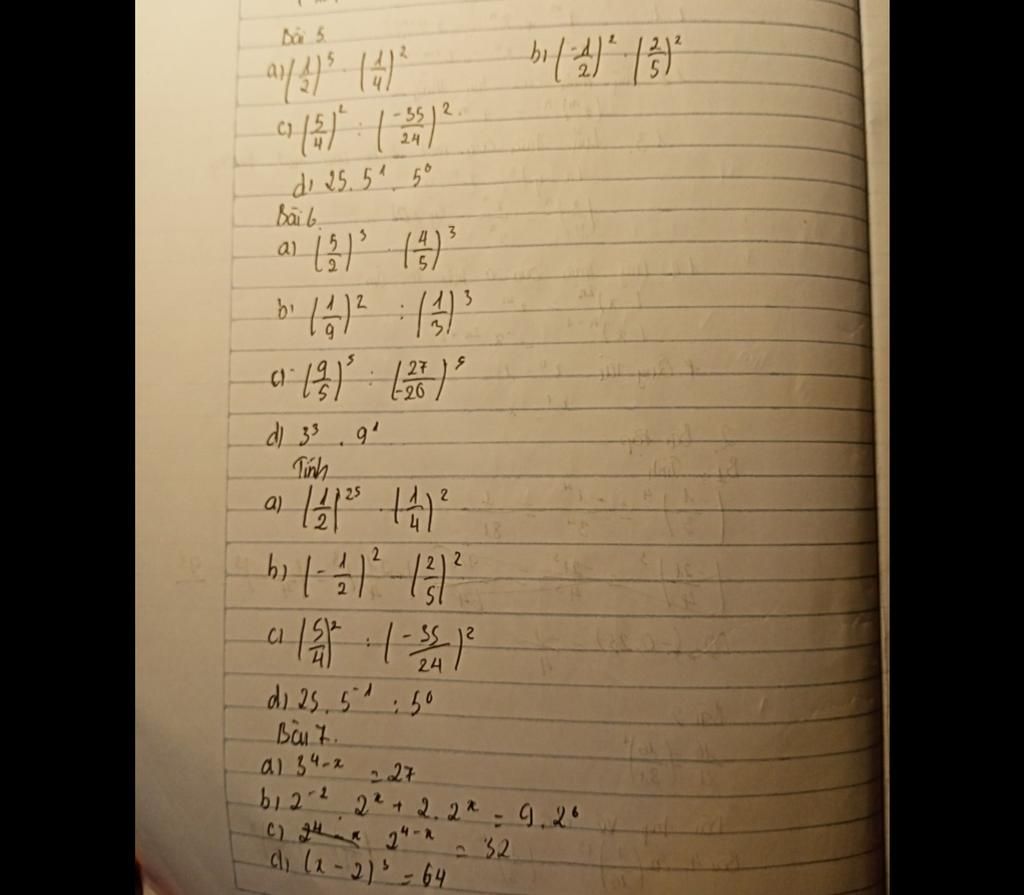 Bài 5.
a) (1/2)^5 . (1/4)^2 b) (-1/2)^2 . (2/5)^2
c) (5/4)^2 : (-35/24)^2
d) 25.5^1 . 5^0
Bài 6.
a) (5/2)^3 . (4/5)^3
b) (1/9)^2 : (1/3)^3
c) (9/5)^5 : (27/-20)^5
d) 3^3 . 9^1
Tính
a) (1/2)^25 . (1/4)^2
b) (-1/2)^2 - (2/5)^2
c) (5/4)^2 : (-35/24)^2
d) 25.5^-1 : 5^0
Bài 7.
a) 3^4-x = 27
b) 2^-2 . 2^x + 2.2^x = 9.2^6
c) 2^4-x = 32
d) (x - 2)^3 = 64